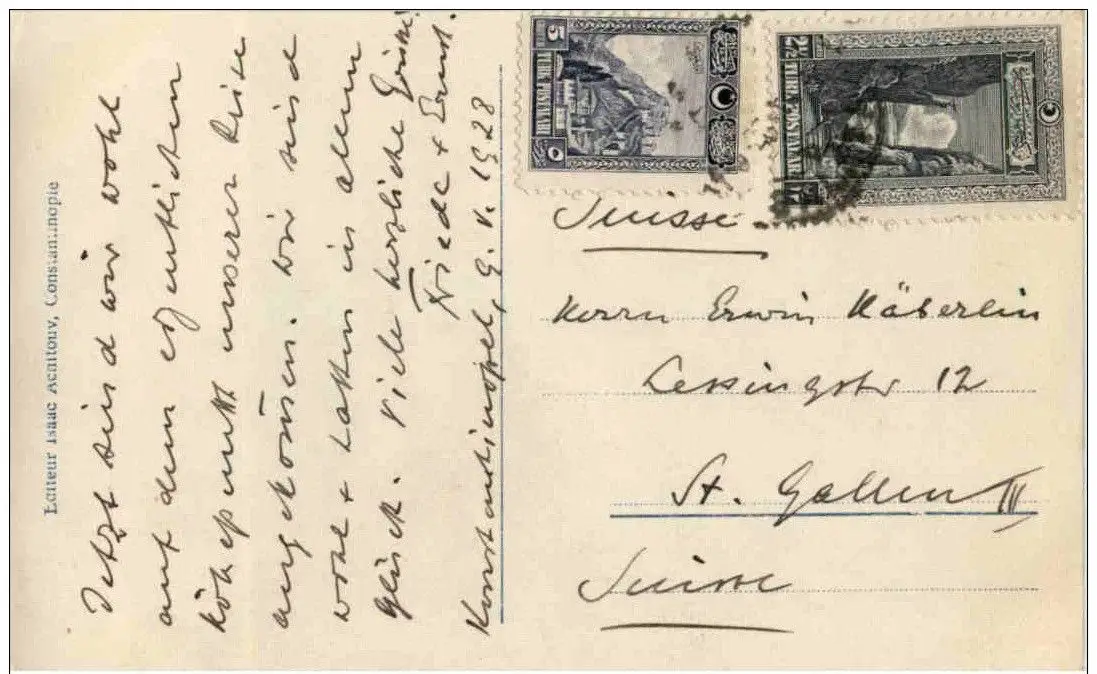 Editeur Isaac Acnitouv, Constantinople
Jetzt sind wir wohl
auf dem eigentlichen
Höhepunkt unserer Reise
angekommen. Wir sind
wohl + haben in allem
Glück. Viele herzliche Grüsse
Friede + Ernst.
Konstantinopel, 9. V. 1928
5
TÜRK POSTALARI
2½
TÜRK POSTALARI
2½
Suisse.
Herrn Erwin Häberlin
Lessingstr 12
St. Gallen III
Suisse